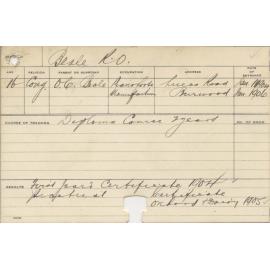 Beale R.O.
AGE RELIGION PARENT OR GUARDIAN OCCUPATION ADDRESS DATE OF ENTRANCE
16 Cong. O.C. Beale Pianoforte Manufacturer Lucas Road Burwood Jan 1904 Jan 1906
COURSE OF TRAINING Diploma Course 2 years
RESULTS First Year's Certificate 1904
Practical Certificate
Orchard & Dairy 1905